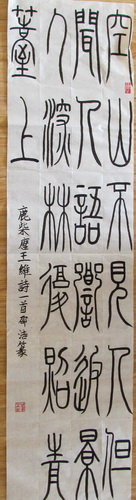 空山不見人但
聞人語響返景
入深林復照青
苔上
鹿柴 唐王維詩一首 浩篆